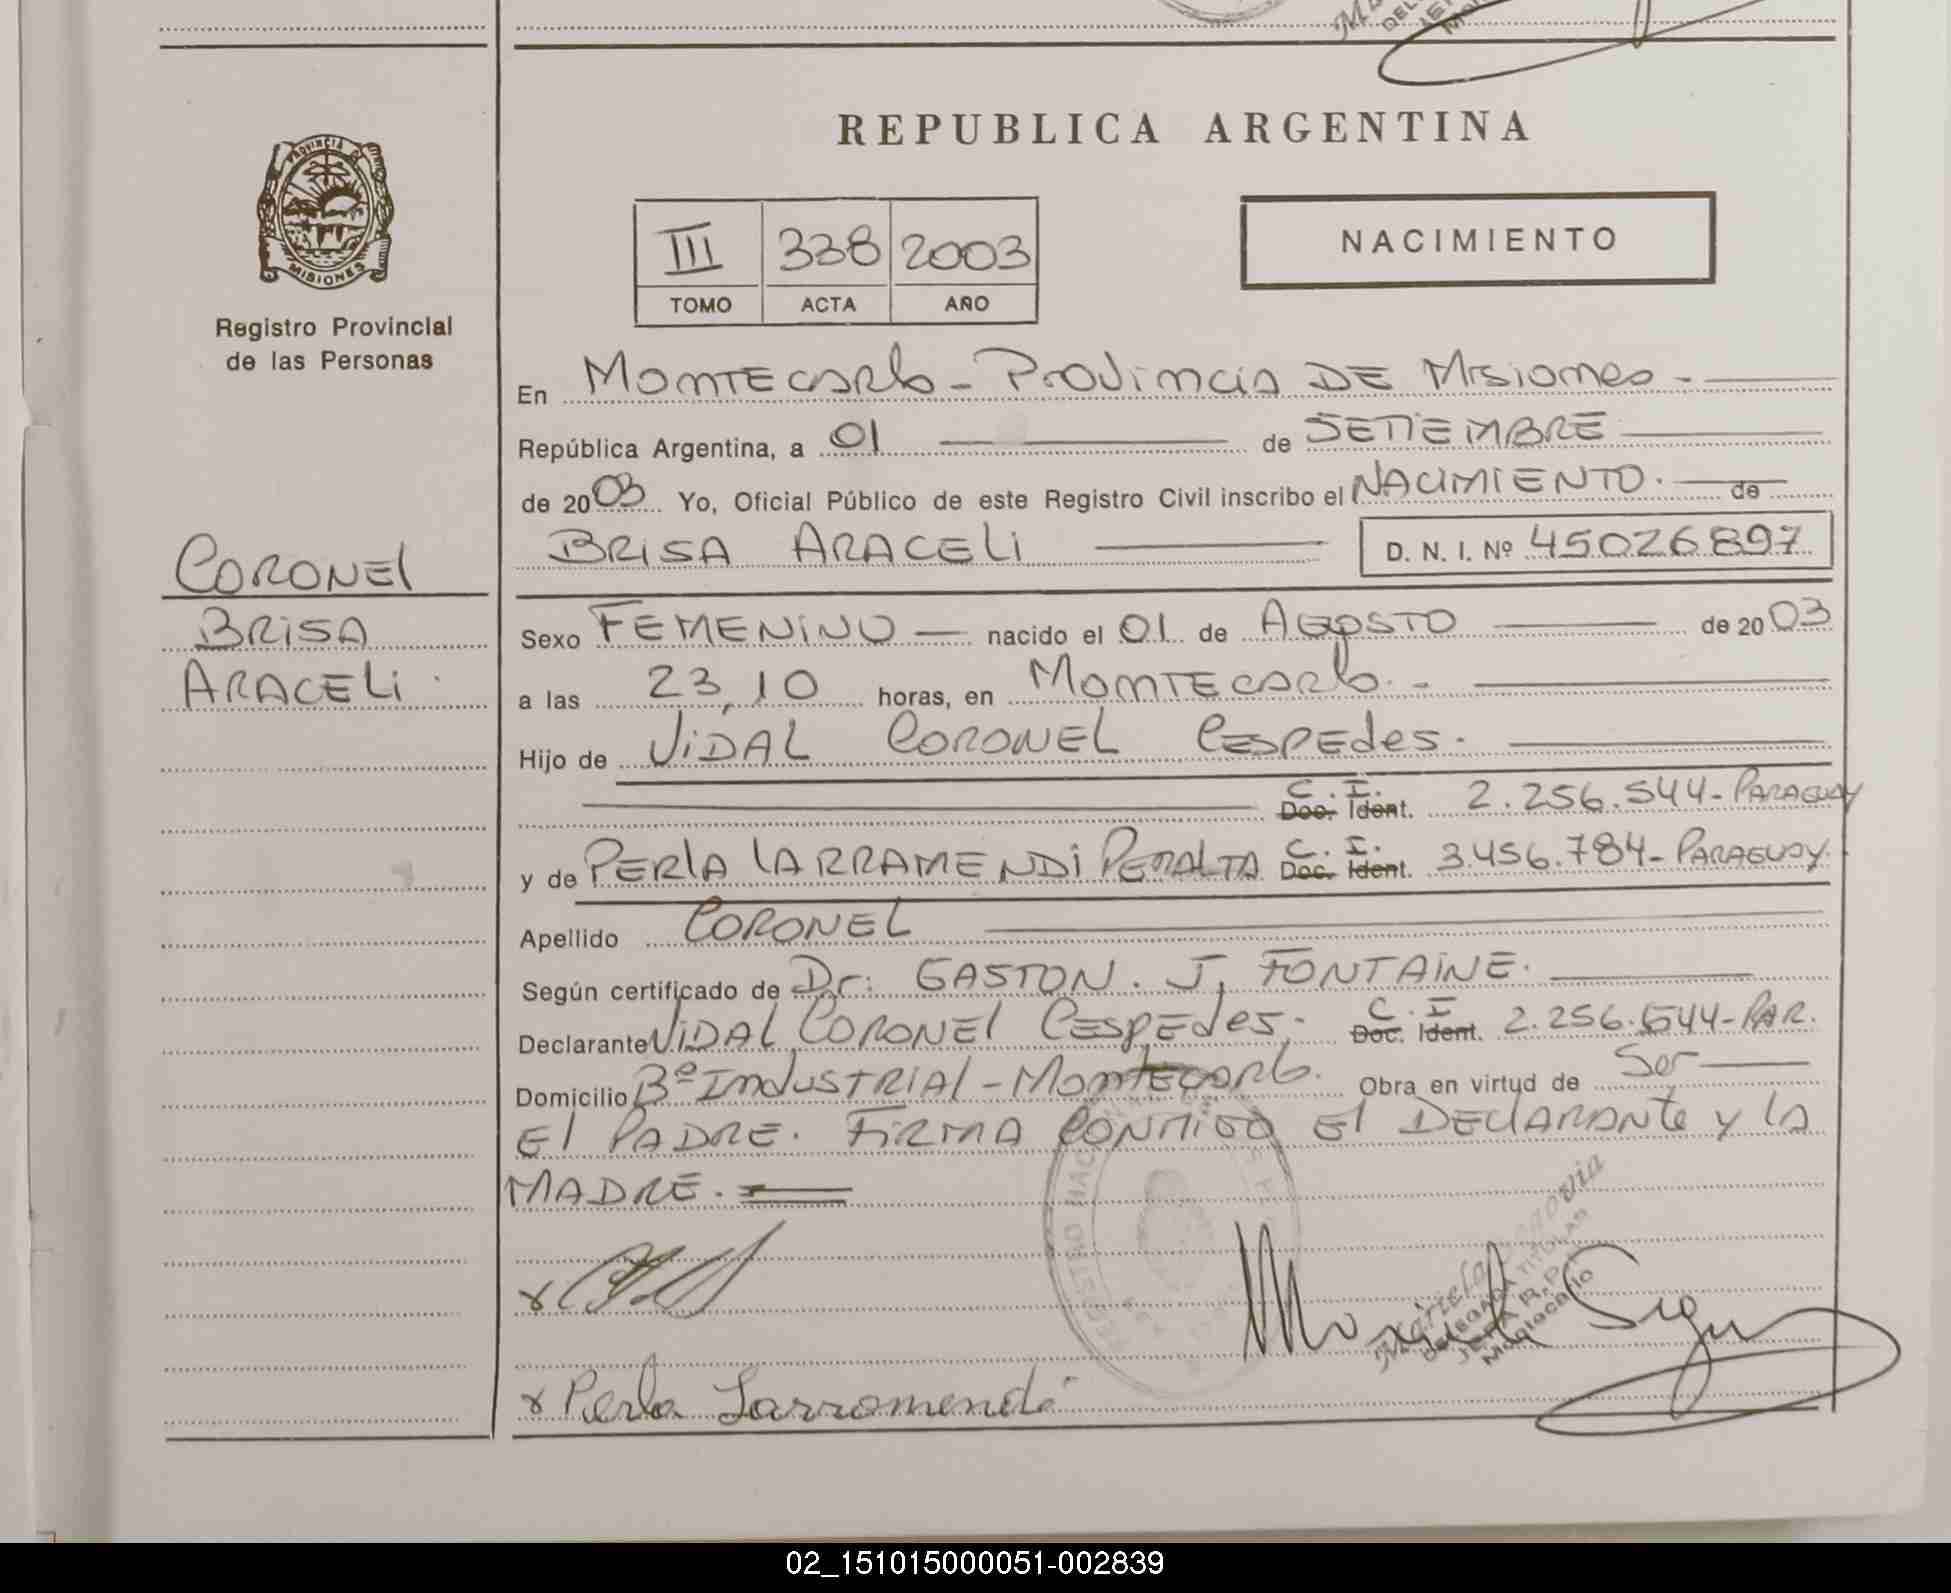 REPUBLICA ARGENTINA
PROVINCIA DE
MISIONES
Registro Provincial
de las Personas
III 338 2003
TOMO ACTA AÑO
NACIMIENTO
En Montecarlo - Provincia DE Misiones -
República Argentina, a 01 de SETIEMBRE
de 2003 Yo, Oficial Público de este Registro Civil inscribo el NACIMIENTO. de
BRISA ARACELI D. N. I. Nº 45026897
CORONEL
BRISA
ARACELI.
Sexo FEMENINO nacido el 01 de AGOSTO de 2003
a las 23,10 horas, en Montecarlo. -
Hijo de VIDAL CORONEL CESPEDES.
C. I. Doc. Ident. 2.256.544- PARAGUAY
y de PERLA LARRAMENDI PERALTA C. I. Doc. Ident. 3.456.784- PARAGUAY.
Apellido CORONEL
Según certificado de Dr: GASTON. J. FONTAINE.
Declarante VIDAL CORONEL CESPEDES. C. I Doc. Ident. 2.256.544- PAR.
Domicilio Bº INDUSTRIAL - Montecarlo. Obra en virtud de Ser
El PADRE. FIRMA CONMIGO El DECLARANTE y LA
MADRE.
REGISTRO NACIONAL
DELEGADA TITULAR
JEFA R.P.
x Perla Larramendi
02_151015000051-002839